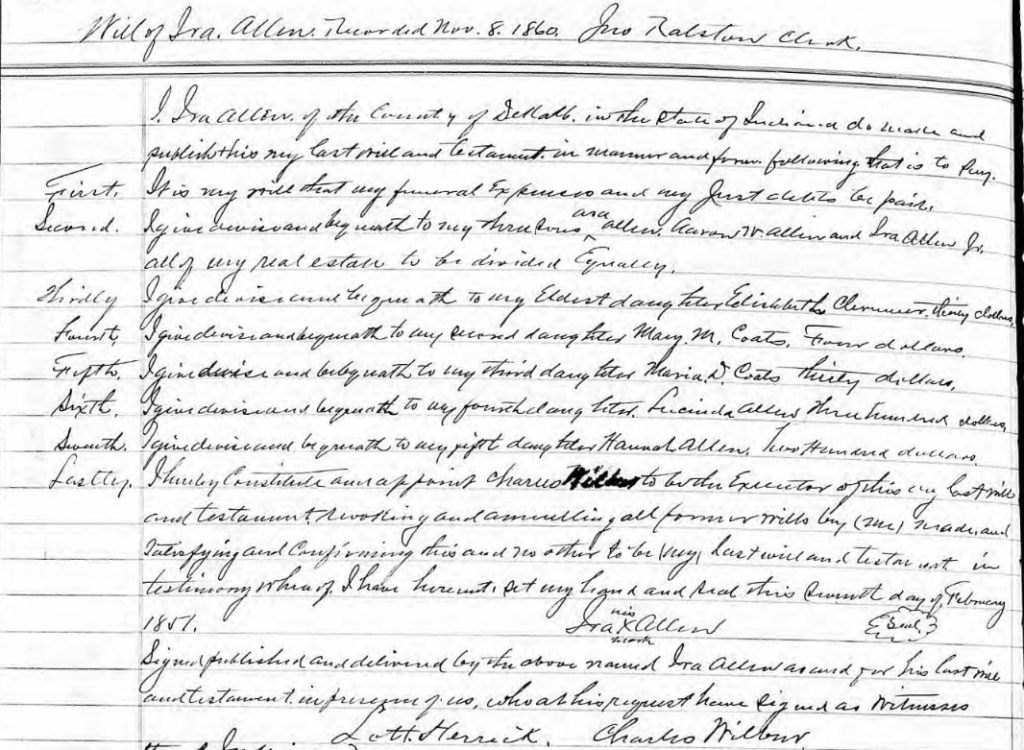 Will of Ira. Allen. Recorded Nov. 8. 1860. Jno Ralston Clerk.
I. Ira Allen. of the County of DeKalb. in the State of Indiana do make and
publish this my last will and testament. in manner and form. following that is to Say.
First. It is my will that my funeral Expenses and my Just debts be paid.
Second. I give devise and bequeath to my three sons asa allen. Aaron W. Allen and Ira Allen Jr.
all of my real estate to be divided Equally.
Thirdly I give devise and bequeath to my Eldest daughter Elizabeth thirty dollars,
Fourth, I give devise and bequeath to my second daughter Mary. M. Coats. Four dollars.
Fifth. I give devise and bebqueath to my third daughter Maria. D. Coats thirty dollars.
Sixth. I give devise and bequeath to my fourth daughter. Lucinda Allen three hundred dollars,
Seventh. I give devise and bequeath to my fifth daughter Hannah Allen. Two Hundred dollars.
Lastly. I hereby Constitute and appoint Charles Wilber to be the Executor of this my last will
and testament, revoking and annulling all former wills by (me) made, and
ratifying and Confirming this and no other to be (my) last will and testament in
testimony where of, I have hereunto, set my hand and Seal this Seventh day of, February
1857. Ira his X mark Allen Seal
Signed published and delivered by the above named Ira Allen as and for his last will
and testament. in presence of us, who at his request have signed as Witnesses
Lott. Herrick. Charles Wilbur.